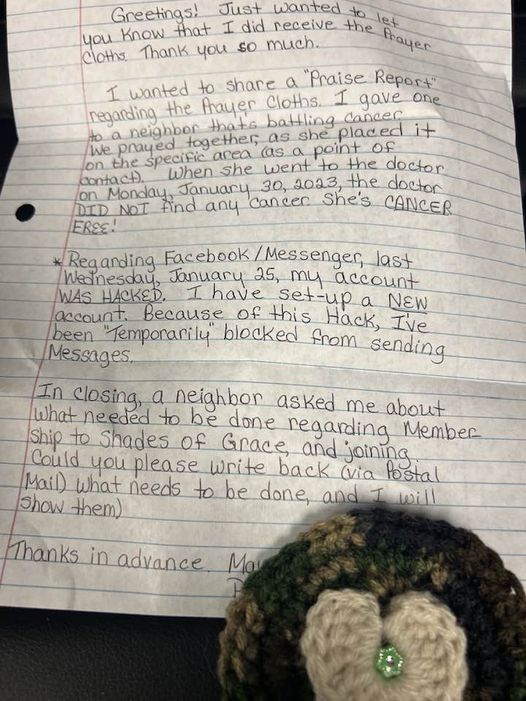 Greetings! Just wanted to let
you know that I did receive the Prayer
Cloths. Thank you so much.
I wanted to share a "Praise Report"
regarding the Prayer Cloths. I gave one
to a neighbor that's battling cancer
We prayed together, as she placed it
on the specific area (as a point of
contact). When she went to the doctor
on Monday, January 30, 2023, the doctor
DID NOT find any cancer. She's CANCER
FREE!
* Regarding Facebook/Messenger, last
Wednesday, January 25, my account
WAS HACKED. I have set-up a NEW
account. Because of this Hack, I've
been "Temporarily" blocked from sending
Messages.
In closing, a neighbor asked me about
what needed to be done regarding Member
ship to Shades of Grace, and joining.
Could you please write back (via Postal
Mail) what needs to be done, and I will
show them)
Thanks in advance.